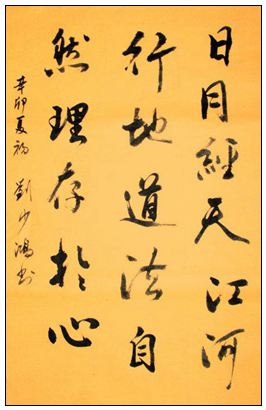 日月經天江河
行地道法自
然理存於心
辛卯夏初劉少鴻书